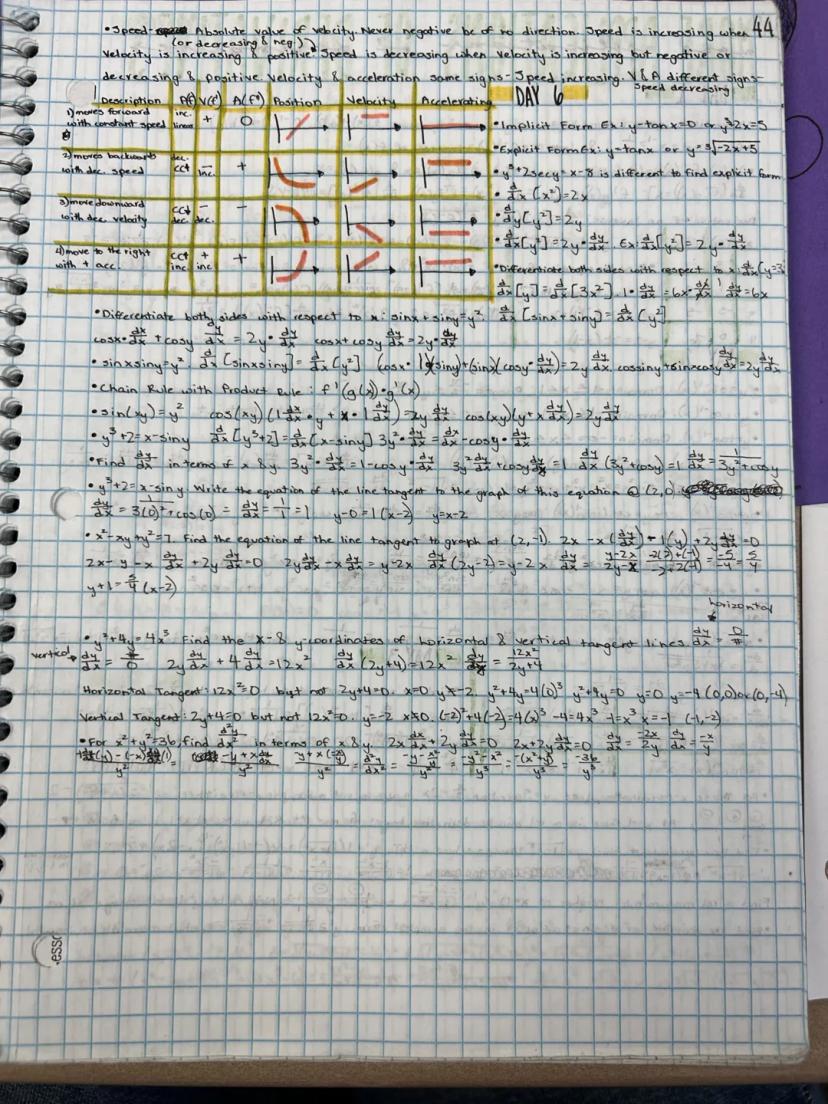 44
•Speed- Absolute value of velocity. Never negative bc of no direction. Speed is increasing when
(or decreasing & neg.)
velocity is increasing & positive. Speed is decreasing when velocity is increasing but negative or
decreasing & positive. Velocity & acceleration same signs - Speed increasing. V & A different signs-
Speed decreasing
Description P(f) V(f') A(f") Position Velocity Accelerating
1) moves forward with constant speed inc. linear + 0
2) moves backwards with dec. speed dec. CC↑ - inc. +
3) move downward with dec. velocity CC↓ dec. - dec. -
4) move to the right with + acc. CC↑ inc. + inc. +
DAY 6
•Implicit Form Ex: y-tanx=0 or y³2x=5
•Explicit Form Ex: y=tanx or y=³√-2x+5
•y³+2secy=x-8 is different to find explicit form
•d/dx[x²]=2x
•d/dy[y²]=2y
•d/dx[y²]=2y•dy/dx. Ex: d/dx[y²]=2y•dy/dx
•Differentiate both sides with respect to x: d/dx[y=3
d/dx[y]=d/dx[3x²] 1•dy/dx=6x•dx/dx dy/dx=6x
•Differentiate both sides with respect to x: sinx+siny=y². d/dx[sinx+siny]=d/dx[y²]
cosx•dx/dx+cosy dy/dx=2y•dy/dx cosx+cosy dy/dx=2y•dy/dx
•sinxsiny=y². d/dx[sinxsiny]=d/dx[y²] (cosx•1)(siny)+(sinx)(cosy•dy/dx)=2y dy/dx. cosxsiny+sinxcosy dy/dx=2y dy/dx
•Chain Rule with Product Rule: f'(g(x))•g'(x)
•sin(xy)=y² cos(xy)(1 dx/dx•y+x•1 dy/dx)=2y dy/dx cos(xy)(y+x dy/dx)=2y dy/dx
•y³+2=x-siny d/dx[y³+2]=d/dx[x-siny] 3y²•dy/dx=dx/dx-cosy•dy/dx
•Find dy/dx in terms of x & y. 3y²•dy/dx=1-cosy•dy/dx 3y² dy/dx+cosy dy/dx=1 dy/dx(3y²+cosy)=1 dy/dx=1/3y²+cosy
•y³+2=x-siny Write the equation of the line tangent to the graph of this equation @ (2,0)
dy/dx=1/3(0)²+cos(0)= dy/dx=1/1=1 y-0=1(x-2) y=x-2
•x²-xy+y²=7. Find the equation of the line tangent to graph at (2,-1). 2x-x(dy/dx)-1(y)+2y dy/dx=0
2x-y-x dy/dx+2y dy/dx=0 2y dy/dx-x dy/dx=y-2x dy/dx(2y-2)=y-2x dy/dx=y-2x/2y-x -2(2)+(-1)/-2+2(-1)=-5/-4=5/4
y+1=5/4(x-2)
horizontal
•y²+4y=4x³ Find the x- & y-coordinates of horizontal & vertical tangent lines. dy/dx=0/#
vertical→ dy/dx=#/0 2y dy/dx+4 dy/dx=12x² dy/dx(2y+4)=12x² dy/dx=12x²/2y+4
Horizontal Tangent: 12x²=0 but not 2y+4=0. x=0 y≠-2. y²+4y=4(0)³ y²+4y=0 y=0 y=-4 (0,0) or (0,-4)
Vertical Tangent: 2y+4=0 but not 12x²=0. y=-2 x≠0. (-2)²+4(-2)=4(x)³ -4=4x³ -1=x³ x=-1 (-1,-2)
•For x²+y²=36, find d²y/dx² in terms of x & y. 2x dx/dx+2y dy/dx=0 2x+2y dy/dx=0 dy/dx=-2x/2y dy/dx=-x/y
-y+x dy/dx/y² y+x(-x/y)/y²=d²y/dx²=-y-x²/y/y²=-y²-x²/y³=-(x²+y²)/y³=-36/y³